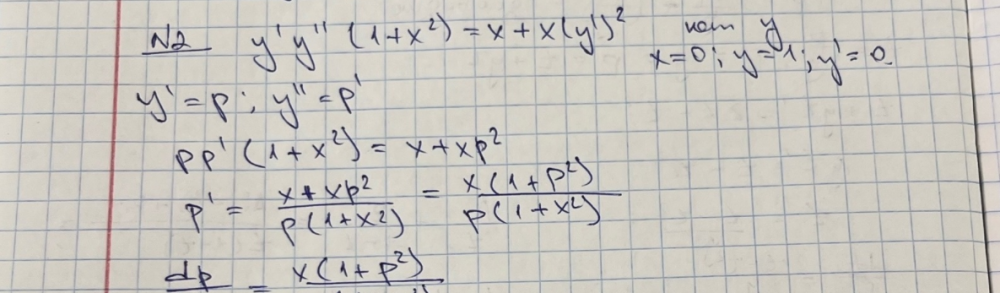 N2 y'y''(1+x²)=x+x(y')² нет y
x=0; y=1; y'=0
y'=p; y''=p'
pp'(1+x²)=x+xp²
p' = x+xp² / p(1+x²) = x(1+p²) / p(1+x²)
dp = x(1+p²)